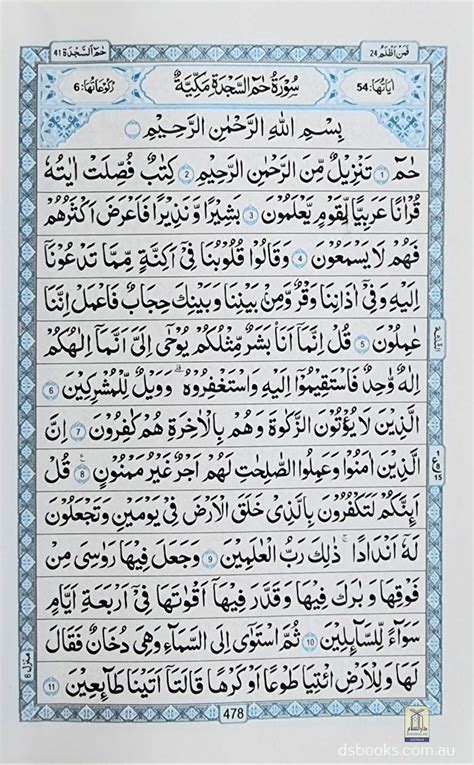 فمن اظلم 24
حٰمٓ السجدة 41
اٰیَاتُهَا: 54
سُوْرَةُ حٰمٓ السَّجْدَةِ مَكِّیَّةٌ
رُكُوْعَاتُهَا: 6
بِسْمِ اللّٰهِ الرَّحْمٰنِ الرَّحِیْمِ
حٰمٓ 1 تَنْزِیْلٌ مِّنَ الرَّحْمٰنِ الرَّحِیْمِ 2 كِتٰبٌ فُصِّلَتْ اٰیٰتُهٗ
قُرْاٰنًا عَرَبِیًّا لِّقَوْمٍ یَّعْلَمُوْنَ 3 بَشِیْرًا وَّنَذِیْرًا فَاَعْرَضَ اَكْثَرُهُمْ
فَهُمْ لَا یَسْمَعُوْنَ 4 وَقَالُوْا قُلُوْبُنَا فِیْۤ اَكِنَّةٍ مِّمَّا تَدْعُوْنَاۤ
اِلَیْهِ وَفِیْۤ اٰذَانِنَا وَقْرٌ وَّمِنْۢ بَیْنِنَا وَبَیْنِكَ حِجَابٌ فَاعْمَلْ اِنَّنَا
عٰمِلُوْنَ 5 قُلْ اِنَّمَاۤ اَنَا بَشَرٌ مِّثْلُكُمْ یُوْحٰۤی اِلَیَّ اَنَّمَاۤ اِلٰهُكُمْ
اِلٰهٌ وَّاحِدٌ فَاسْتَقِیْمُوْۤا اِلَیْهِ وَاسْتَغْفِرُوْهُ ؕ وَوَیْلٌ لِّلْمُشْرِكِیْنَ 6
الَّذِیْنَ لَا یُؤْتُوْنَ الزَّكٰوةَ وَهُمْ بِالْاٰخِرَةِ هُمْ كٰفِرُوْنَ 7 اِنَّ
الَّذِیْنَ اٰمَنُوْا وَعَمِلُوا الصّٰلِحٰتِ لَهُمْ اَجْرٌ غَیْرُ مَمْنُوْنٍ 8 قُلْ
اَىِٕنَّكُمْ لَتَكْفُرُوْنَ بِالَّذِیْ خَلَقَ الْاَرْضَ فِیْ یَوْمَیْنِ وَتَجْعَلُوْنَ
لَهٗۤ اَنْدَادًا ؕ ذٰلِكَ رَبُّ الْعٰلَمِیْنَ 9 وَجَعَلَ فِیْهَا رَوَاسِیَ مِنْ
فَوْقِهَا وَبٰرَكَ فِیْهَا وَقَدَّرَ فِیْهَاۤ اَقْوَاتَهَا فِیْۤ اَرْبَعَةِ اَیَّامٍ
سَوَآءً لِّلسَّآىِٕلِیْنَ 10 ثُمَّ اسْتَوٰۤی اِلَی السَّمَآءِ وَهِیَ دُخَانٌ فَقَالَ
لَهَا وَلِلْاَرْضِ ائْتِیَا طَوْعًا اَوْ كَرْهًا قَالَتَاۤ اَتَیْنَا طَآىِٕعِیْنَ 11
1
ع
8
15
منزل 6
478
dsbooks.com.au